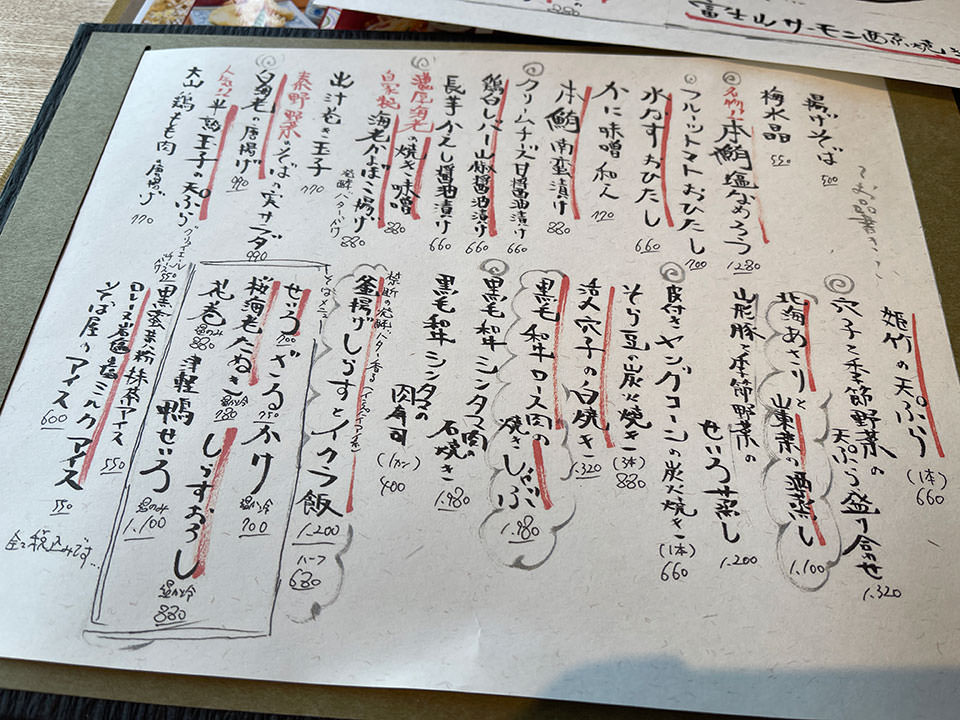 富士山サーモン西京焼き
〜お品書き〜
揚げそば 500
梅水晶 550
名物!! 本鮪塩なめろう 1,280
フルーツトマトおひたし 700
水なすおひたし 660
かに味噌和え 770
本鮪南蛮漬け 880
クリームチーズ甘醤油漬け 660
鶏白レバー山椒醤油漬け 660
長芋かえし醤油漬け 660
濃厚海老の焼き味噌 880
自家製海老かまぼこ揚げ 880
出汁巻き玉子 770
秦野野菜のそばの実サラダ 990
白海老の唐揚げ 990
人気!! 半熟玉子の天ぷら
大山鶏もも肉の唐揚げ 770
姫竹の天ぷら (1本) 660
穴子と季節野菜の天ぷら盛り合わせ 1,320
北海あさりと山東菜の酒蒸し 1,100
山形豚と季節野菜のせいろ蒸し 1,200
皮付きヤングコーンの炭火焼き (1本) 660
そら豆の炭火焼き (3本) 880
活〆穴子の白焼き 1,320
黒毛和牛ロース肉の焼きしゃぶ 1,980
黒毛和牛シンタマ肉の石焼き 1,980
黒毛和牛シンタマの肉寿司 (1カン) 400
禁断の発酵バター香る
釜揚げしらすとイクラ飯 1,200 ハーフ 680
そばメニュー
せいろ 700 ざる 750 かけ 温か冷 700
桜海老たぬき 温か冷 980 しらすおろし 温か冷 880
花巻 温のみ 880 津軽鴨せいろ 温のみ 1,100
黒蜜きな粉抹茶アイス 550
ロレーヌ岩塩の塩ミルクアイス 550
そば屋のアイス 600
全て税込みです…